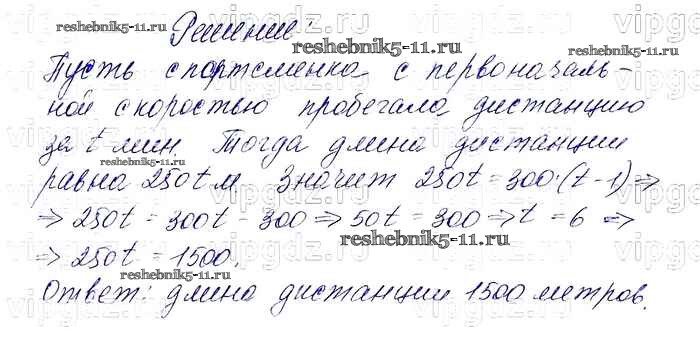 Решение:
Пусть спортсменка с первоначаль-
ной скоростью пробегала дистанцию
за t мин. Тогда длина дистанции
равна 250t м. Значит 250t = 300·(t - 1) ⇒
⇒ 250t = 300t - 300 ⇒ 50t = 300 ⇒ t = 6 ⇒
⇒ 250t = 1500.
Ответ: длина дистанции 1500 метров.
reshebnik5-11.ru
reshebnik5-11.ru
reshebnik5-11.ru
reshebnik5-11.ru
reshebnik5-11.ru
reshebnik5-11.ru
vipgdz.ru